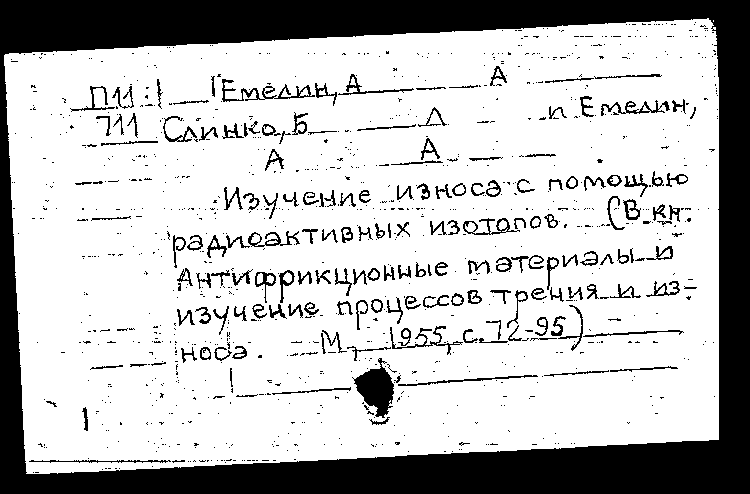 П11:1 Емелин, А А
711 Слинко, Б Л и Емелин,
А А
Изучение износа с помощью
радиоактивных изотопов. (В кн.
Антифрикционные материалы и
изучение процессов трения и из-
носа. М, 1955, с. 72-95)
1